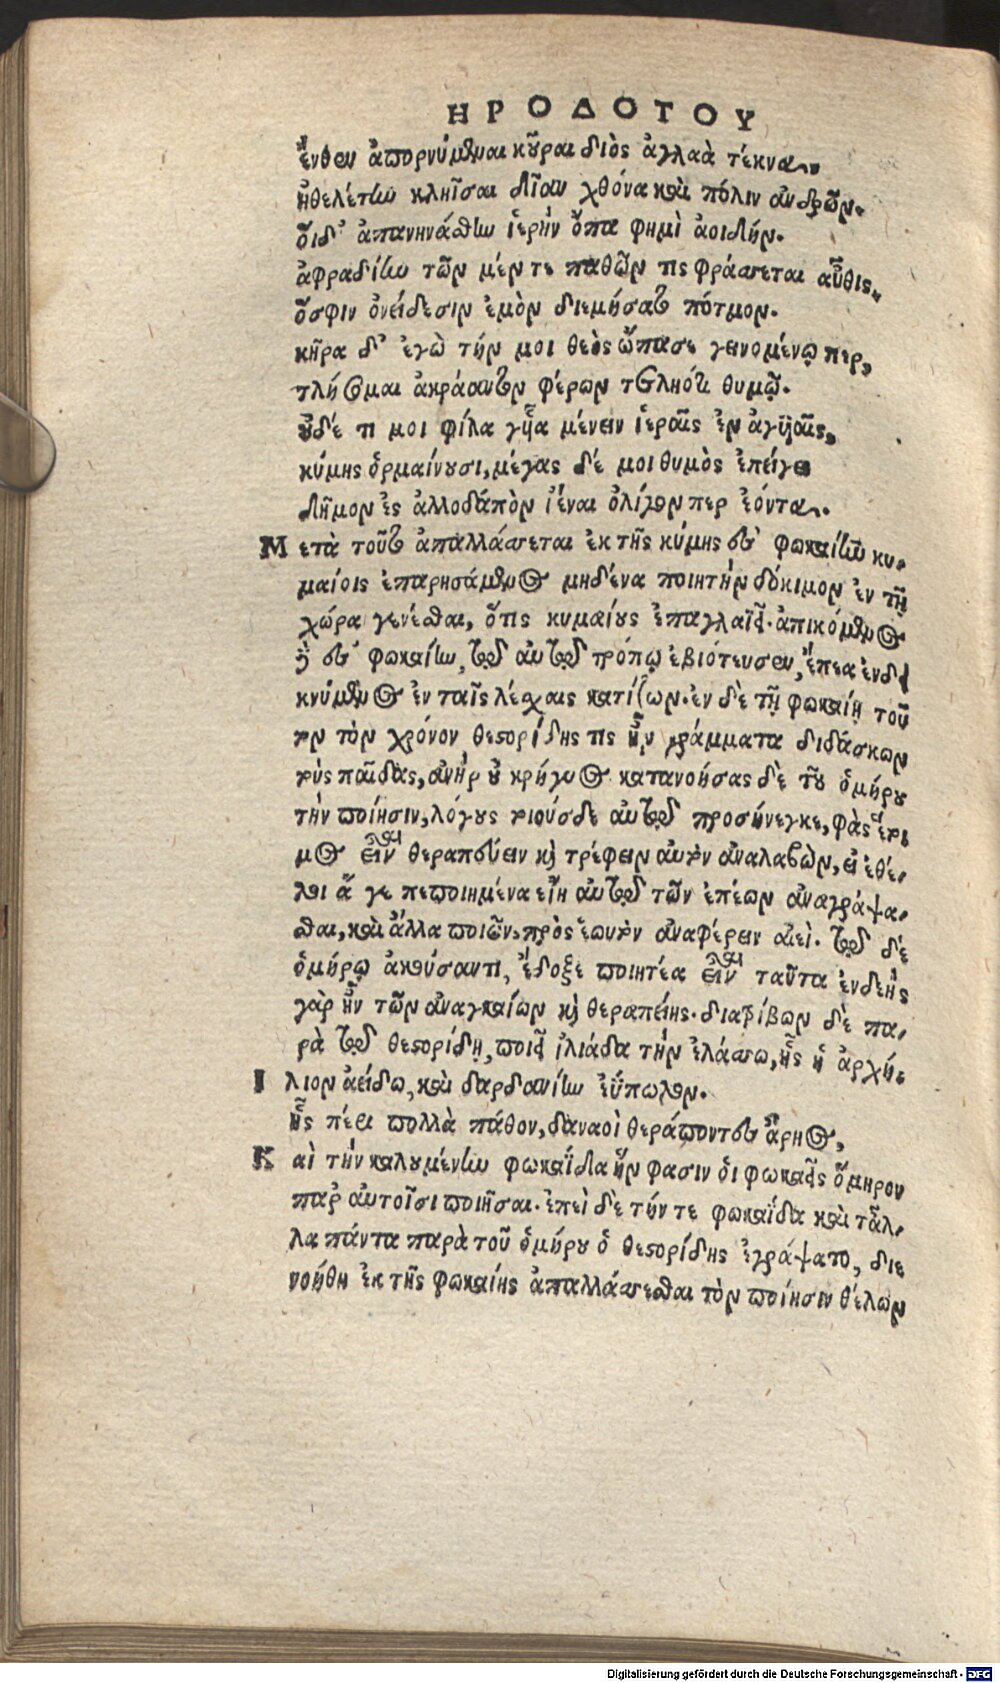 ΗΡΟΔΟΤΟΥ
ἔνθεν ἀπορνύμεναι κοῦραι διὸς ἀγλαὰ τέκνα,
ἠθελέτην κληῖσαι δῖαν χθόνα καὶ πόλιν ἀνδρῶν.
οἵδ' ἀπανηνάσθην ἱερὴν ὄπα φημὶ ἀοιδήν.
ἀφραδίην τῶν μέν τε παθῶν τις φράσσεται αὖθις,
ὅσφιν ὀνείδεσιν ἐμὸν διεμήσατο πότμον.
κῆρα δ' ἐγὼ τήν μοι θεὸς ὤπασε γεινομένῳ περ,
τλήσομαι ἀκράαντον φέρων τετληότι θυμῷ.
οὐδέ τι μοι φίλα γυῖα μένειν ἱεραῖς ἐν ἀγυιαῖς,
κύμης ὁρμαίνουσι, μέγας δέ μοι θυμὸς ἐπείγει
δῆμον ἐς ἀλλοδαπὸν ἰέναι ὀλίγον περ ἐόντα.
Μετὰ τοῦτο ἀπαλλάσσεται ἐκ τῆς κύμης ἐς φωκαίην κυ-
μαίοις ἐπαρησάμενος μηδένα ποιητὴν δόκιμον ἐν τῇ
χώρα γενέσθαι, ὅτις κυμαίους ἐπαγλαϊεῖ. ἀπικόμενος
ἢ ἐς φωκαίην, τῷ αὐτῷ τρόπῳ ἐβιότευσεν, ἔπεα ἐνδι
κνύμενος ἐν ταῖς λέσχαις κατίζων. ἐν δὲ τῇ φωκαίῃ τοῦ
τον τὸν χρόνον θεστορίδης τις ἦν γράμματα διδάσκων
τοὺς παῖδας, ἀνὴρ οὐ κρήγυος κατανοήσας δὲ τοῦ ὁμήρου
τὴν ποίησιν, λόγους τοιούσδε αὐτῷ προσήνεγκε, φὰς ἕτοι
μος εἶναι θεραπεύειν καὶ τρέφειν αὐτὸν ἀναλαβὼν, εἰ ἐθέ-
λοι ἅ γε πεποιημένα εἴη αὐτῷ τῶν ἐπέων ἀναγράψα-
σθαι, καὶ ἄλλα ποιῶν, πρὸς ἑωυτὸν ἀναφέρειν αἰεὶ. τῷ δὲ
ὁμήρῳ ἀκούσαντι, ἔδοξε ποιητέα εἶναι ταῦτα ἐνδεὴς
γὰρ ἦν τῶν ἀναγκαίων καὶ θεραπείης. διατρίβων δὲ πα-
ρὰ τῷ θεστορίδῃ, ποιεῖ ἰλιάδα τὴν ἐλάσσω, ἧς ἡ ἀρχή.
Ἴλιον ἀείδω, καὶ δαρδανίην ἐΰπωλον.
ἧς πέρι πολλὰ πάθον, δαναοὶ θεράποντες ἄρηος,
Καὶ τὴν καλουμένην φωκαΐδα ἥν φασιν οἱ φωκαεῖς ὅμηρον
παρ αὐτοῖσι ποιῆσαι. ἐπεὶ δὲ τήν τε φωκαΐδα καὶ τἆλ-
λα πάντα παρὰ τοῦ ὁμήρου ὁ θεστορίδης ἐγράψατο, διε
νοήθη ἐκ τῆς φωκαίης ἀπαλλάσσεσθαι τὸν ποίησιν θέλων
Digitalisierung gefördert durch die Deutsche Forschungsgemeinschaft - DFG